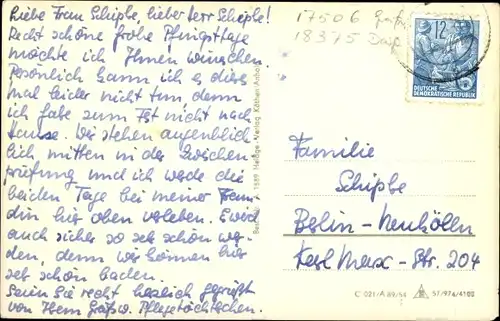 Liebe Frau Schipke, lieber Herr Schipke!
Recht schöne frohe Pfingsttage
möchte ich Ihnen wünschen.
Persönlich kann ich es dies
mal leider nicht tun, denn
ich fahre zum Fest nicht nach
Hause. Wir stehen augenblick
lich mitten in der Zwischen-
prüfung und ich werde die
beiden Tage bei meiner Freun-
din hier oben verleben. Es wird
auch sicher so sehr schön wer-
den, denn wir können hier
sehr schön baden.
Seien Sie recht herzlich gegrüßt
von Ihrem Pflegetöchterchen.
17506
18375
12
DEUTSCHE
DEMOKRATISCHE REPUBLIK
Verlag Köthen Anhalt
Familie
Schipke
Berlin-Neukölln
Karl Marx-Str. 204
C 021/A 89/56 57/974/4100